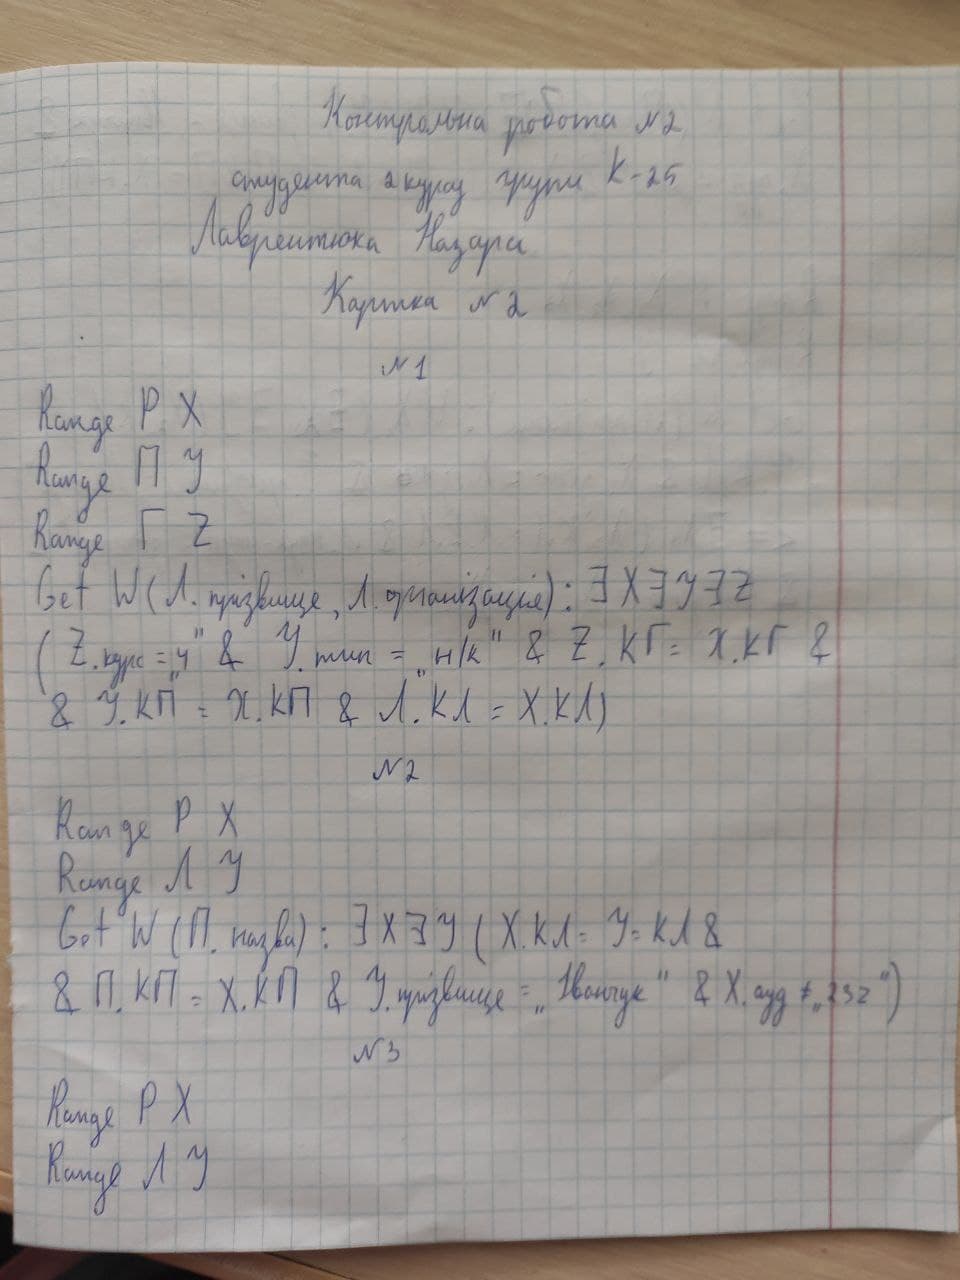 Контрольна робота №2
студента 2 курсу групи К-25
Лаврентюка Назара
Картка №2
№1
Range Р X
Range П Y
Range Г Z
Get W(Л.прізвище, Л.організація): ∃X∃Y∃Z
(Z.курс = „4" & Y.тип = „н/к" & Z.КГ = X.КГ &
& Y.КП = X.КП & Л.КЛ = X.КЛ)
№2
Range Р X
Range Л Y
Get W (П.назва): ∃X∃Y (X.КЛ = Y=КЛ &
& П.КП = X.КП & Y.прізвище = „Іванчук" & X.ауд ≠ „232")
№3
Range Р X
Range Л Y